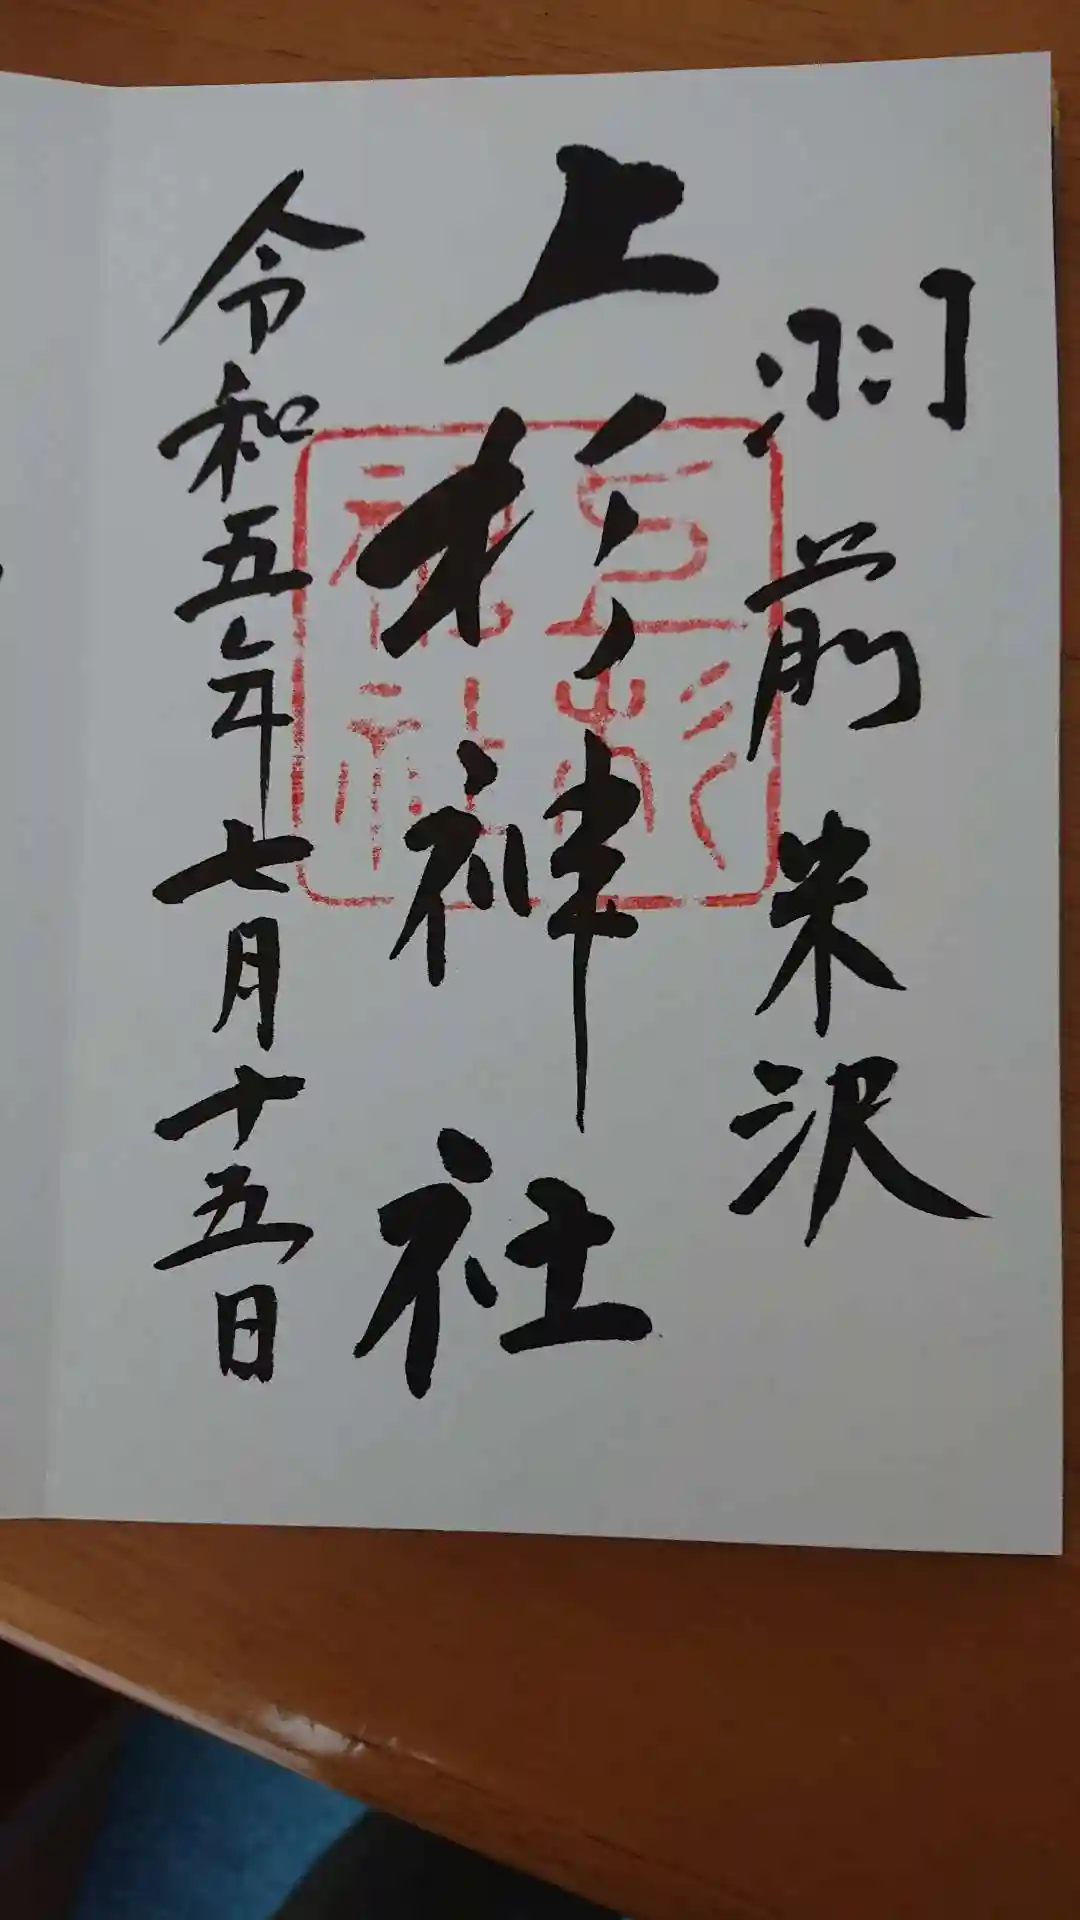 羽前米沢
上杉神社
上杉神社
令和五年七月十五日